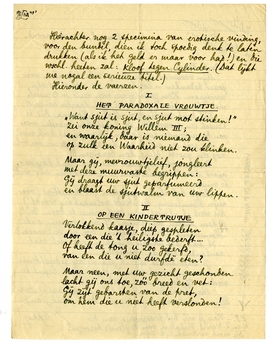 Hierachter nog 2 specimina van erotische vinding,
voor den bundel, dien ik toch spoedig denk te laten
drukken (als ik 't geld er maar voor hap!) en die
wschl. heeten zal: Kloof tegen Cylinder. (Dat lijkt
me nogal een serieuze titel.)
Hieronder de vaerzen.
I
HET PARADOXALE VROUWTJE.
"Want sjut is sjut, en sjut mot stinken!"
Zei onze koning Willem III;
en waarlijk, daar is niemand die
op zulk een Waarheid niet zou klinken.
Maar gij, mevrouwtjelief, jongleert
met deze muurvaste begrippen:
Gij draagt uw sjut geparfumeerd
en blaast de sjutwalm van uw lippen.
II
OP EEN KINDERTRUTJE.
Verlokkend kaasje, diep gespleten
door een die 't heiligste bederft....
Of heeft de tong u zoo gekerfd,
van een die u niet durfde eten?
Maar neen, met uw gezicht geschonden
lacht gij ons toe, zoo breed en vet:
Gij zijt gebarsten van de pret,
om hem die u niet heeft verslonden!